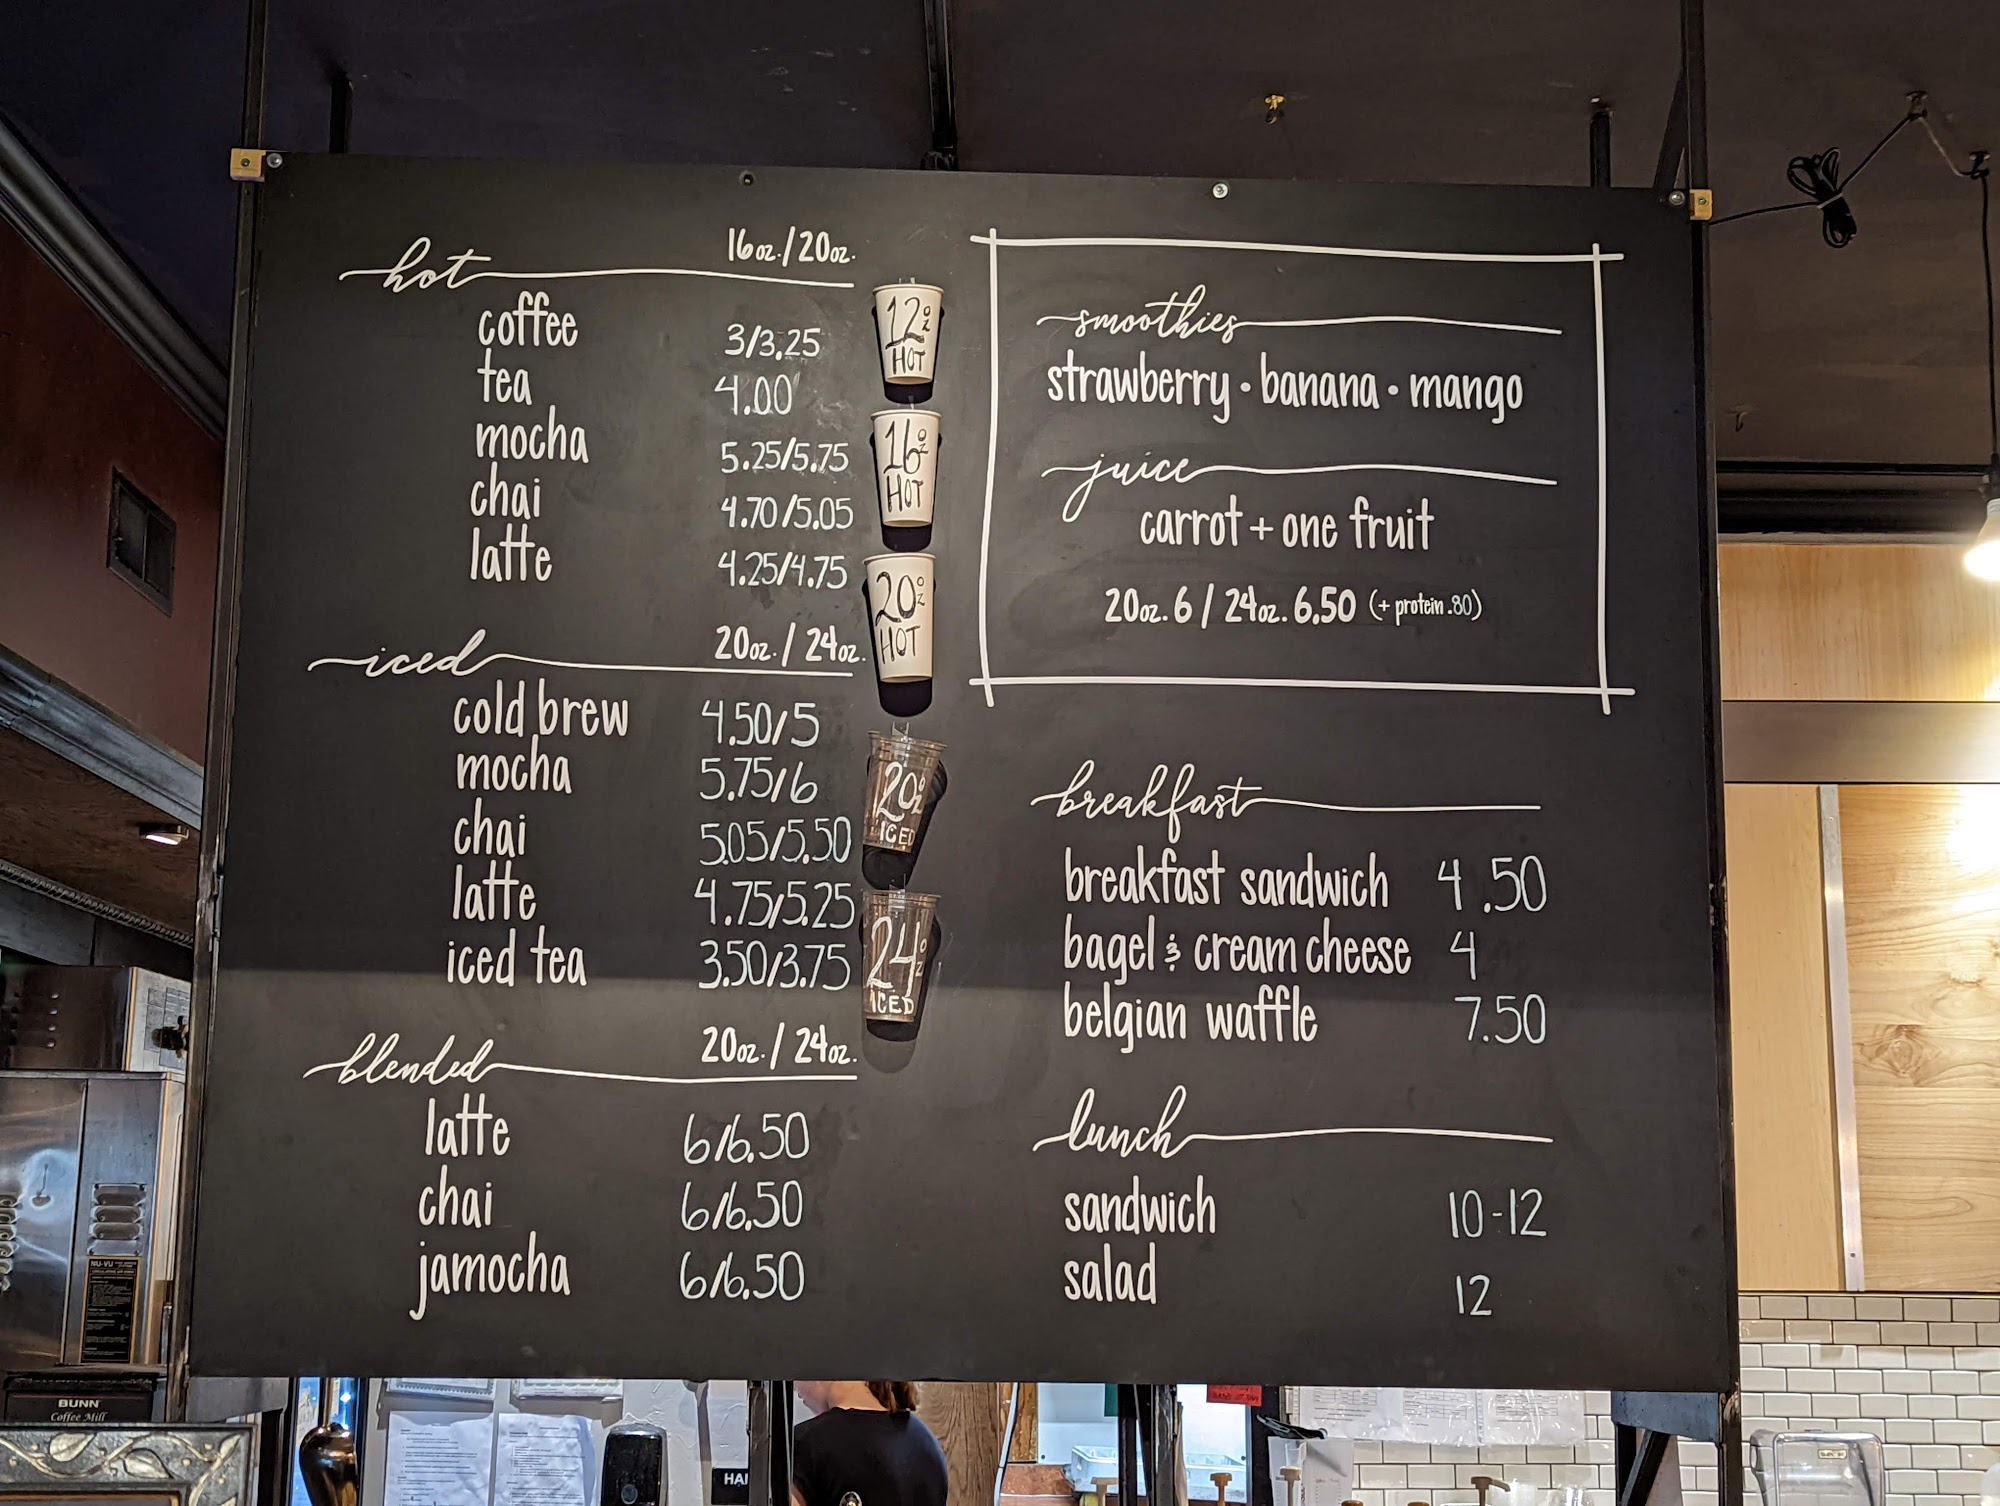 hot 16oz. / 20oz.
coffee 3/3.25
tea 4.00
mocha 5.25/5.75
chai 4.70/5.05
latte 4.25/4.75
12oz HOT
16oz HOT
20oz HOT
iced 20oz. / 24oz.
cold brew 4.50/5
mocha 5.75/6
chai 5.05/5.50
latte 4.75/5.25
iced tea 3.50/3.75
20oz ICED
24oz ICED
blended 20oz. / 24oz.
latte 6/6.50
chai 6/6.50
jamocha 6/6.50
smoothies
strawberry • banana • mango
juice
carrot + one fruit
20oz. 6 / 24oz. 6.50 (+ protein .80)
breakfast
breakfast sandwich 4.50
bagel & cream cheese 4
belgian waffle 7.50
lunch
sandwich 10-12
salad 12
NU-VU
BUNN
Coffee Mill
HA